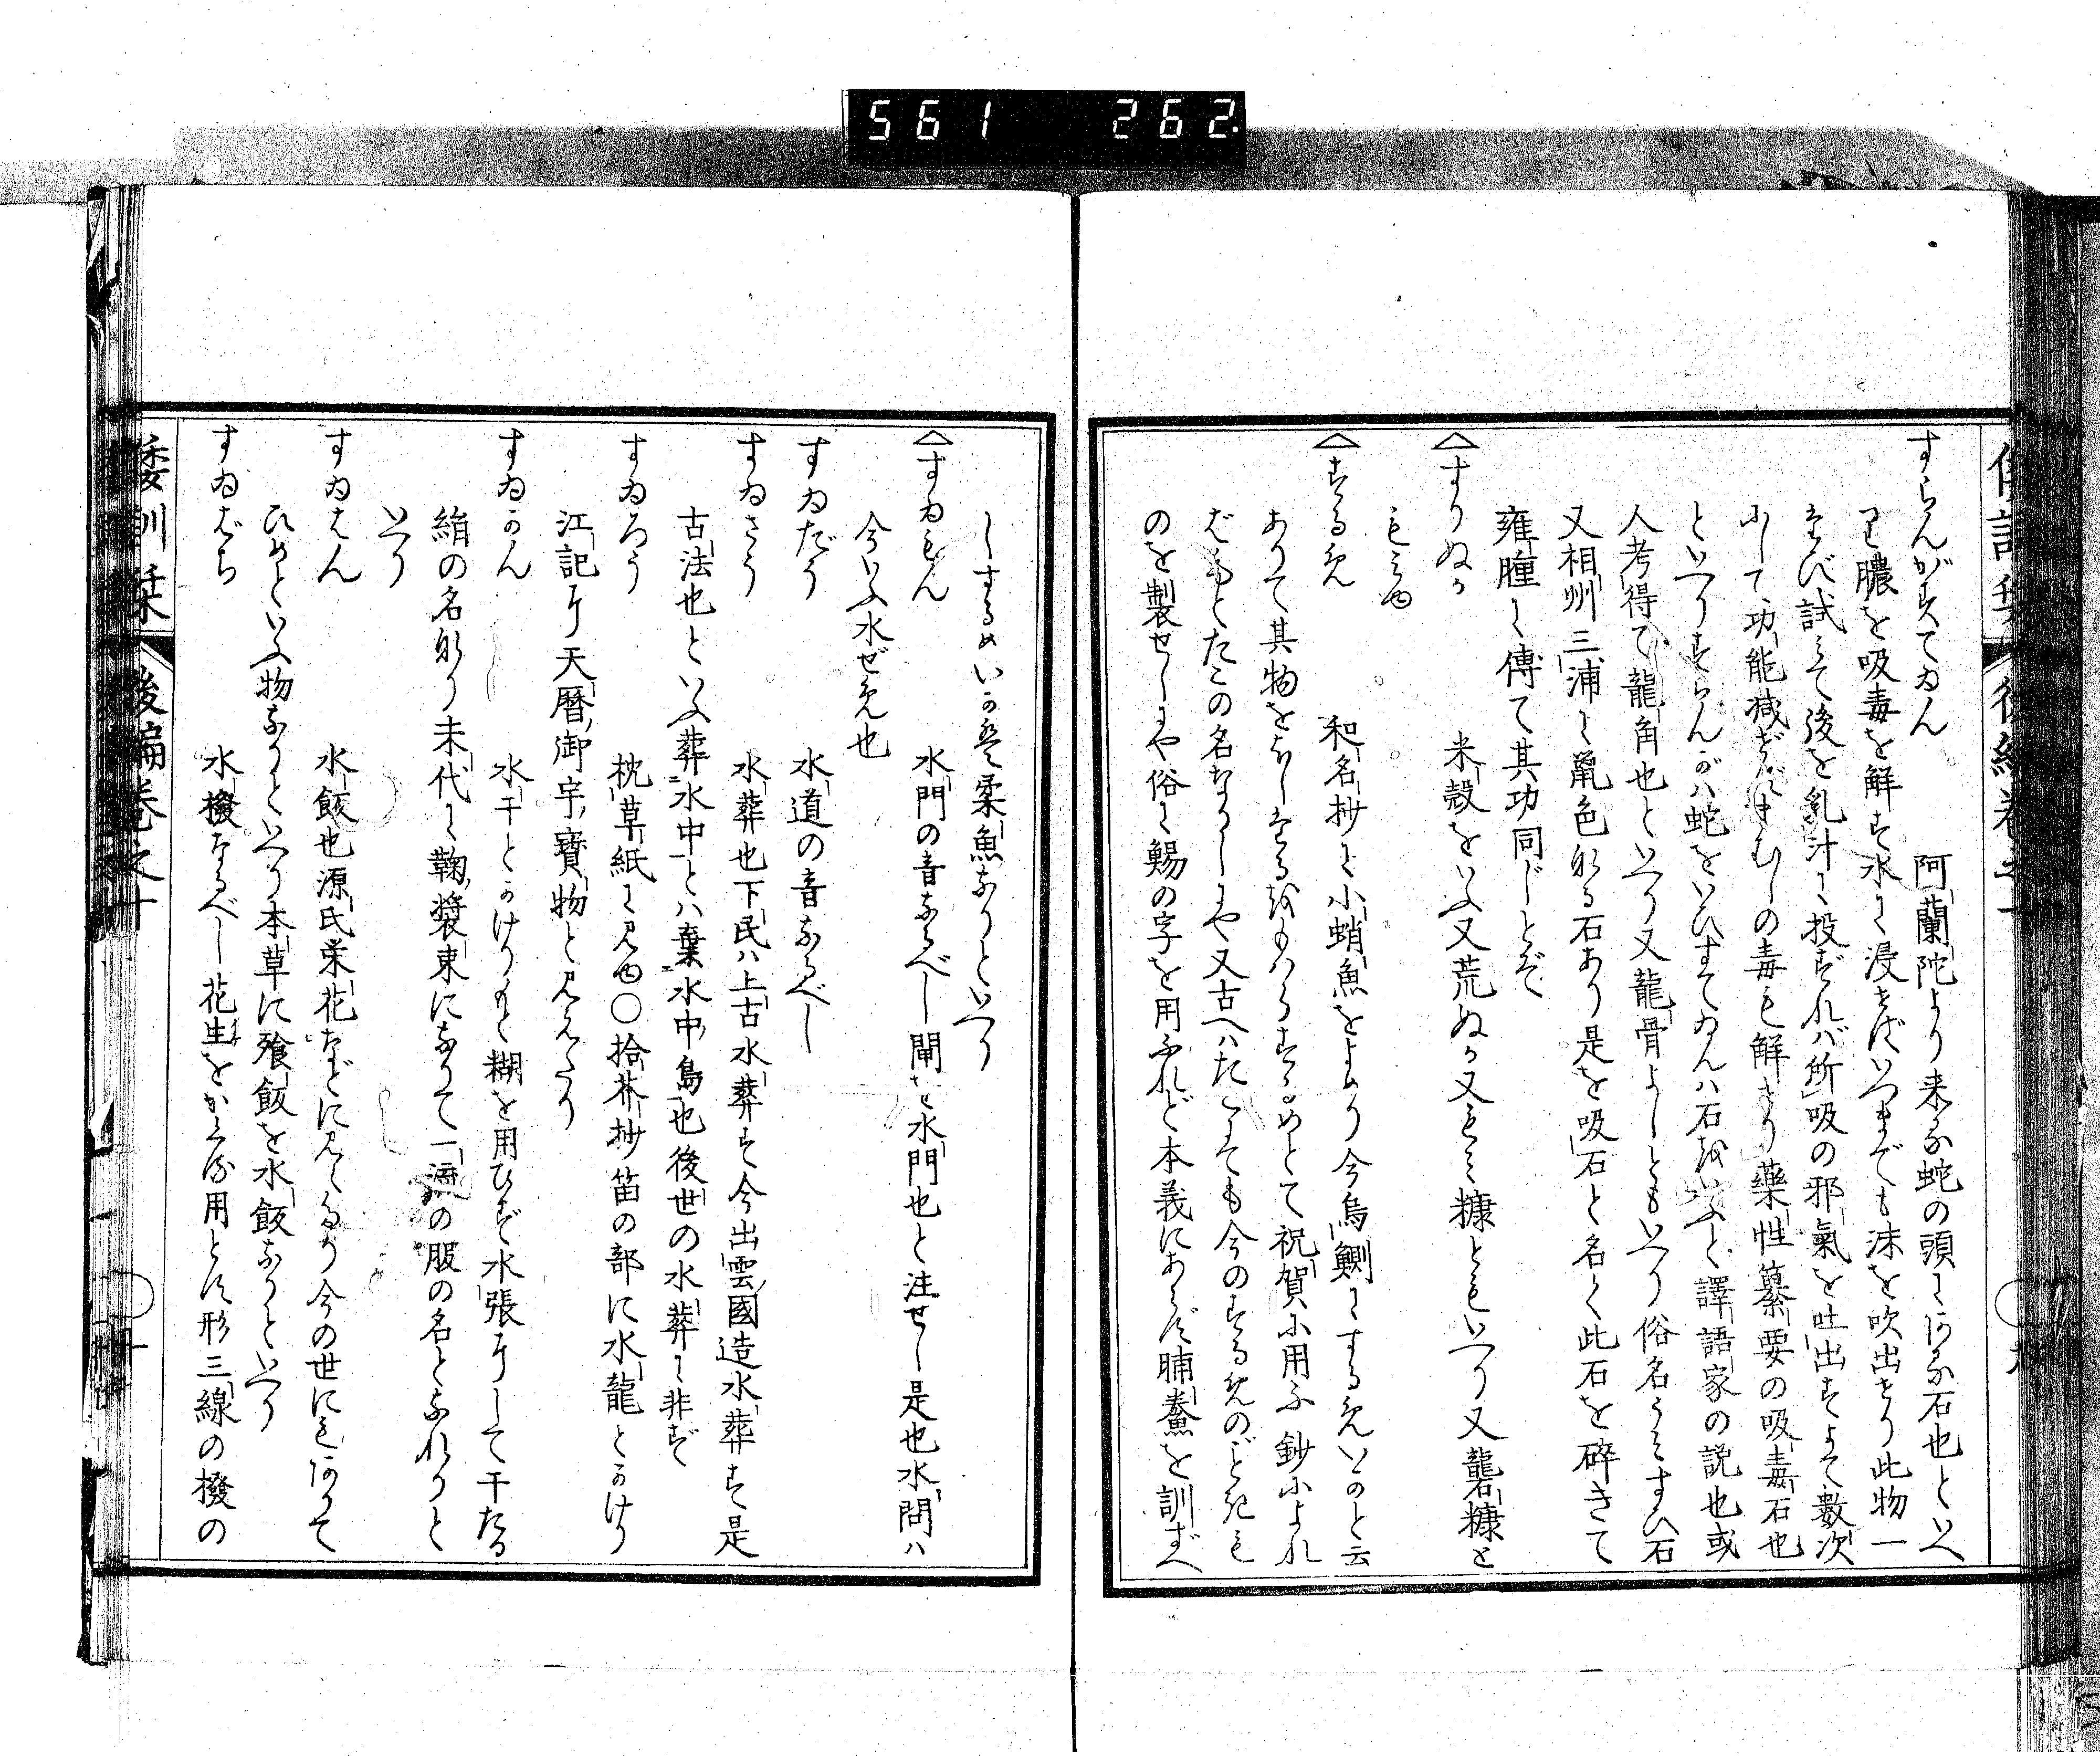 561 262.
すらんがすてゐん 阿蘭陀より来る蛇の頭にある石也といへ
り膿を吸毒を解す水に浸せばいつまでも沫を吹出せり此物一
たび試みて後を乳汁に投ずれバ所吸の邪氣を吐出すよて數次
にして功能減ぜず
の毒も解せり藥性纂要の吸毒石也
といへりすらんがハ蛇をいひすてゐんハ石をいふと譯語家の説也或
人考得て龍角也といへり又龍骨よしともいへり俗名うみすひ石
又相州三浦に鼠色なる石あり是を吸石と名く此石を碎きて
雍腫に傳て其功同じとぞ
へすりぬか 米殻をいふ又荒ぬか又もみ糠ともいへり又礱糠と
も見ゆ
へするめ 和名抄に小蛸魚をよめり今烏鰂にするめいかと云
ありて其物をほしたるをもハらするめとて祝賀に用ふ鈔によれ
ばもとたこの名なりしにや又古へハたこにても今のするめのごとも
のを製せしにや俗に鯣の字を用ふれど本義にあらず脯鮝を訓ずべ
しするめいかハ柔魚なりといへり
へすゐもん 水門の音なるべし閘ハ水門也と注せし是也水閘ハ
今いふ水ぜき也
すゐだう 水道の音なるべし
すゐさう 水葬也下民ハ上古水葬す今出雲國造水葬す是
古法也といふ葬水中とハ棄水中島也後世の水葬に非ず
すゐろう 枕草紙に見ゆ〇拾芥抄笛の部に水龍とかけり
江記ニ天暦御宇寶物と見えたり
すゐかん 水干とかけりもと糊を用ひず水張にして干たる
絹の名なり末代に鞠装束になりて一流の服の名となれりと
いへり
すゐはん 水飯也源氏栄花などに見えたり今の世にもありて
ひめといふ物なりといへり本草に飱飯を水飯なりといへり
すゐばち 水撥なるべし花生をかくる用とす形三線の撥の
倭訓栞 後編巻之十